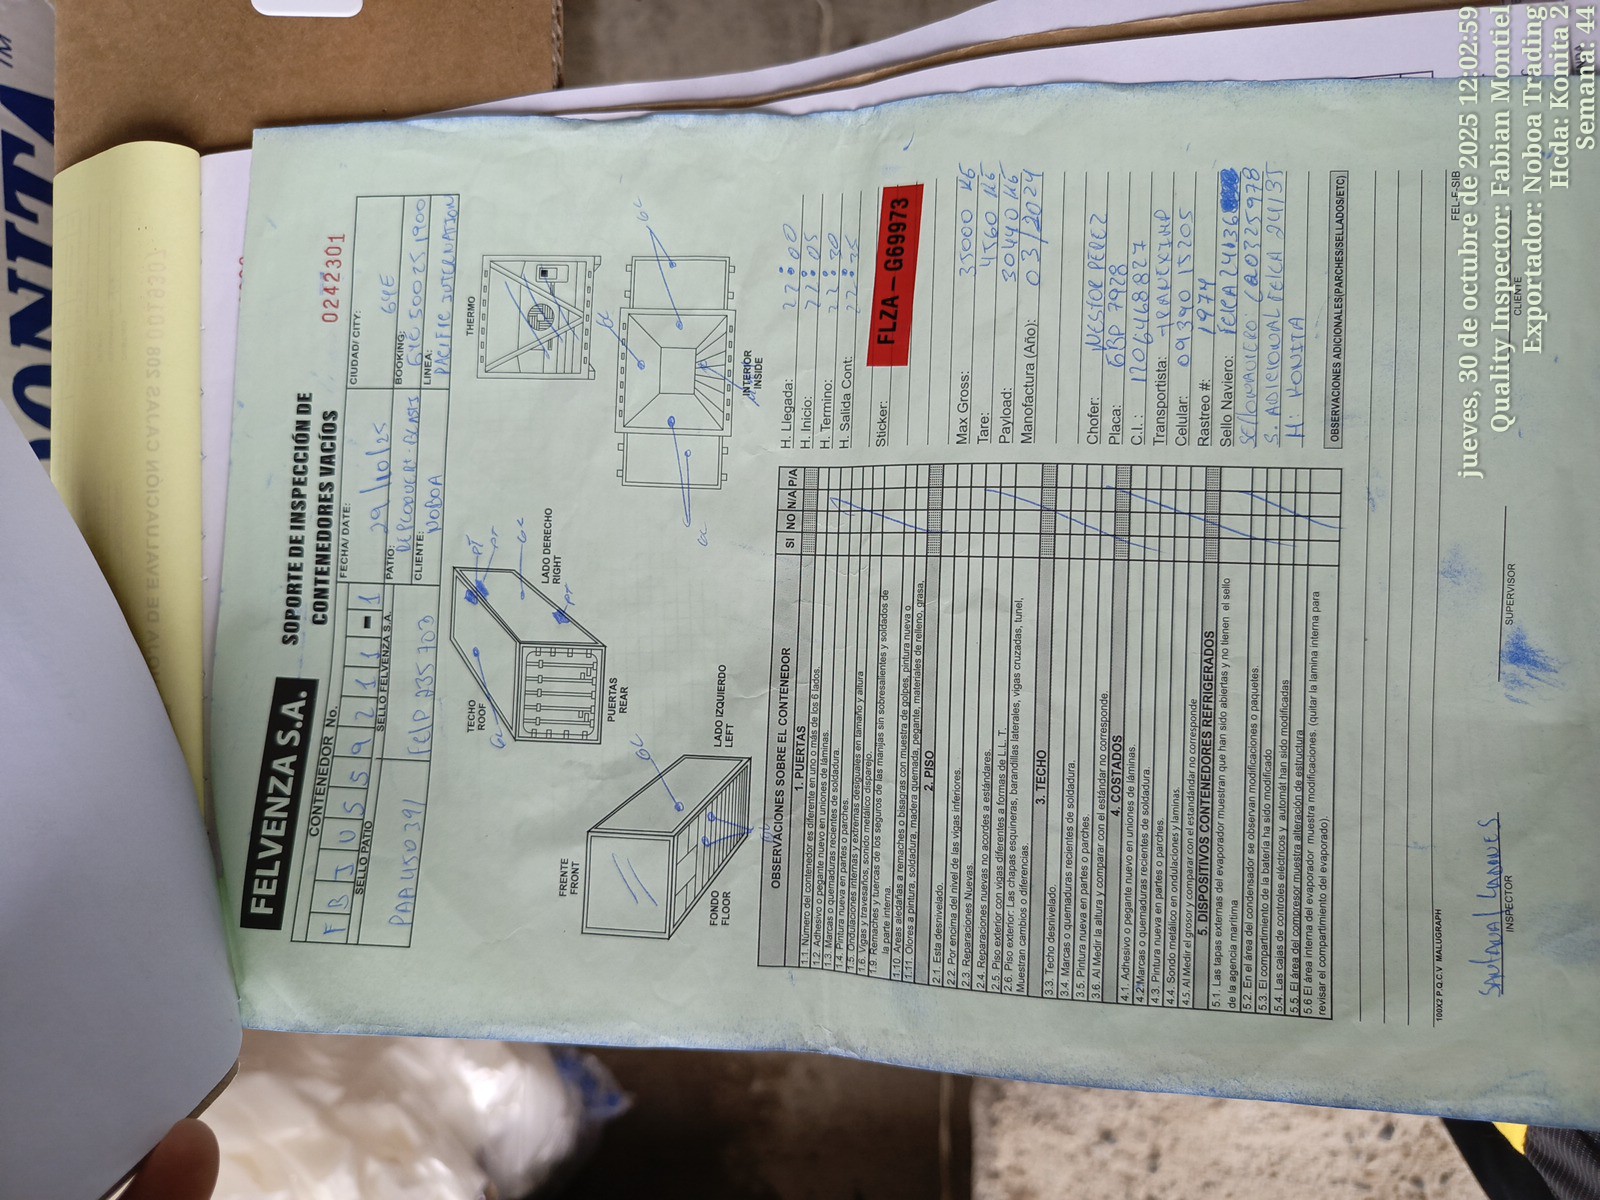 BONITA™
HOJA DE EVALUACIÓN CAJAS 208 0019307
FELVENZA S.A.
SOPORTE DE INSPECCIÓN DE
CONTENEDORES VACÍOS
0242301
CONTENEDOR No.
FBIU559211-1
SELLO PATIO
SELLO FELVENZA S.A.
PAA450391
FELP 235703
FECHA/ DATE:
29/10/25
CIUDAD/ CITY:
GYE
PATIO:
BOOKING:
GYE500251900
CLIENTE:
NOBOA
LINEA:
PACIFIC INTERNATION
TECHO
ROOF
GL
PT
PT
GL
LADO DERECHO
RIGHT
PT
PUERTAS
REAR
THERMO
FRENTE
FRONT
GL
FONDO
FLOOR
LADO IZQUIERDO
LEFT
GL
GL
GL
INTERIOR
INSIDE
OBSERVACIONES SOBRE EL CONTENEDOR
SI NO N/A P/A
1. PUERTAS
1.1. Número del contenedor es diferente en uno o más de los 6 lados.
1.2. Adhesivo o pegante nuevo en uniones de láminas.
1.3. Marcas o quemaduras recientes de soldadura.
1.4. Pintura nueva en partes o parches.
1.5. Ondulaciones internas y extremas desiguales en tamaño y altura
1.6. Vigas y travesaños, sonido metálico disparejo.
1.9. Remaches y tuercas de los seguros de las manijas sin sobresalientes y soldados de
la parte interna.
1.10. Areas aledañas a remaches o bisagras con muestra de golpes, pintura nueva o
1.11. Olores a pintura, soldadura, madera quemada, pegante, materiales de relleno, grasa,
2. PISO
2.1. Esta desnivelado.
2.2. Por encima del nivel de las vigas inferiores.
2.3. Reparaciones Nuevas.
2.4. Reparaciones nuevas no acordes a estándares.
2.5. Piso exterior con vigas diferentes a formas de L.L. T.
2.6. Piso exterior: Las chapas esquineras, barandillas laterales, vigas cruzadas, tunel,
Muestran cambios o diferencias.
3. TECHO
3.3. Techo desnivelado.
3.4. Marcas o quemaduras recientes de soldadura.
3.5. Pintura nueva en partes o parches.
3.6. Al Medir la altura y comparar con el estándar no corresponde.
4. COSTADOS
4.1. Adhesivo o pegante nuevo en uniones de láminas.
4.2. Marcas o quemaduras recientes de soldadura.
4.3. Pintura nueva en partes o parches.
4.4. Sondo metálico en ondulaciones y laminas.
4.5. Al Medir el grosor y comparar con el estandándar no corresponde
5. DISPOSITIVOS CONTENEDORES REFRIGERADOS
5.1. Las tapas externas del evaporador muestran que han sido abiertas y no tienen el sello
de la agencia marítima
5.2. En el área del condensador se observan modificaciones o paquetes.
5.3. El compartimiento de la batería ha sido modificado
5.4. Las cajas de controles eléctricos y automát han sido modificadas
5.5. El área del compresor muestra alteración de estructura
5.6 El área interna del evaporador muestra modificaciones. (quitar la lamina interna para
revisar el compartimiento del evaporado).
H. Llegada:
H. Inicio: 22:05
H. Termino: 22:30
H. Salida Cont: 22:35
Sticker: FLZA – G69973
Max Gross: 35000 KG
Tare: 4560 KG
Payload: 30440 KG
Manofactura (Año): 03/2024
Chofer: NESTOR PEREZ
Placa: GBP 7928
C.I. : 1206468827
Transportista: TRANEXIMP
Celular: 0939015205
Rastreo #: 1974
Sello Naviero: FELCA 24136
SELLO NAVIERO: CQ0325978
S. ADICIONAL FELCA 24135
H: KONITA
OBSERVACIONES ADICIONALES(PARCHES/SELLADOS/ETC)
100X2 P.Q.C.V MALUGRAPH
FEL-F-SIB
INSPECTOR
SUPERVISOR
CLIENTE
jueves, 30 de octubre de 2025 12:02:59
Quality Inspector: Fabian Montiel
Exportador: Noboa Trading
Hcda: Konita 2
Semana: 44